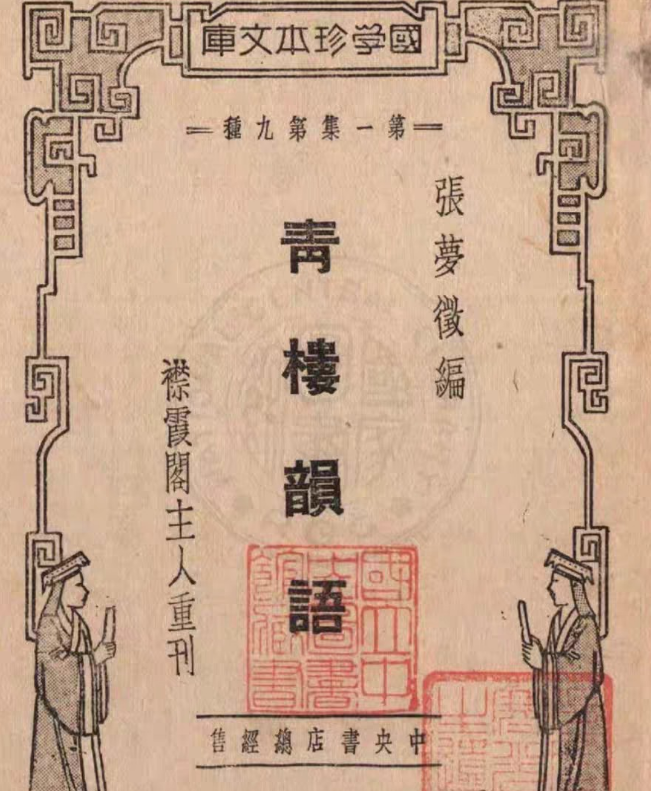 國学珍本文庫
第一集第九種
張夢徵編
青樓韻語
襟霞閣主人重刊
國立中央圖書館藏書
中央書店總經售